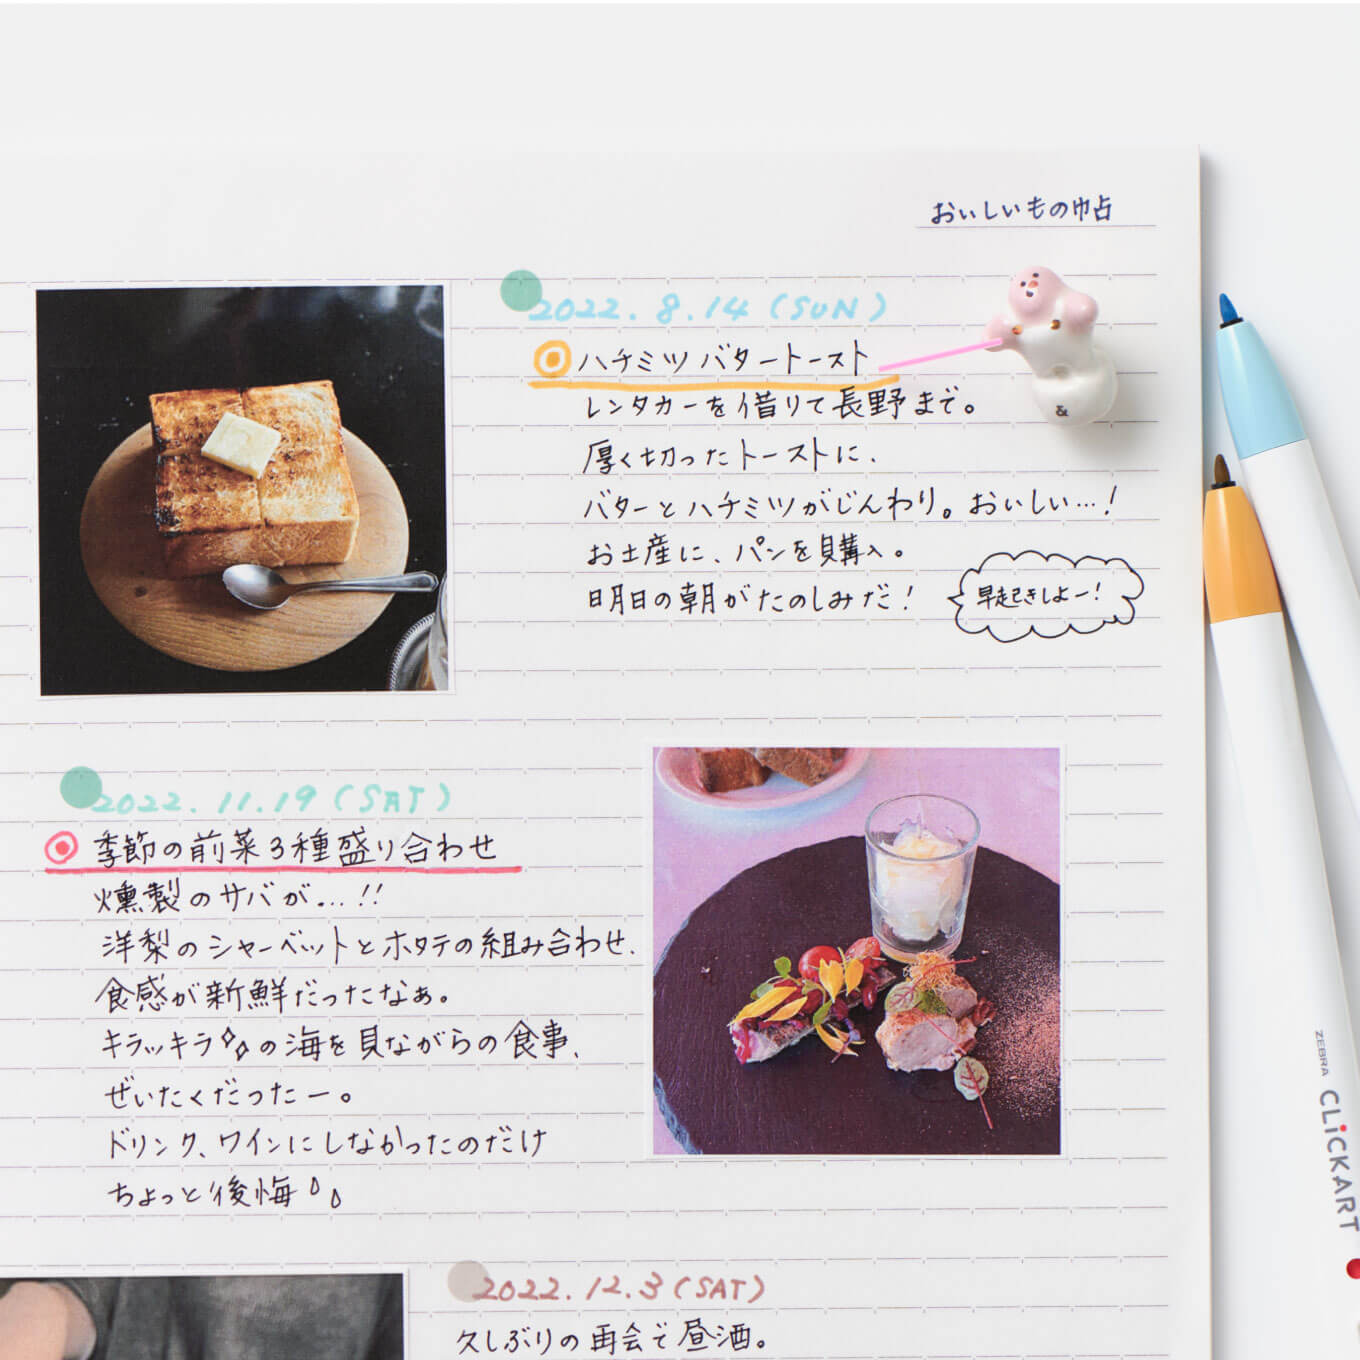 おいしいもの帖
2022.8.14(SUN)
ハチミツバタートースト
レンタカーを借りて長野まで。
厚く切ったトーストに、
バターとハチミツがじんわり。おいしい…!
お土産に、パンを購入。
明日の朝がたのしみだ!
早起きしよー!
&
2022.11.19(SAT)
季節の前菜3種盛り合わせ
燻製のサバが…!!
洋梨のシャーベットとホタテの組み合わせ、
食感が新鮮だったなぁ。
キラッキラの海を見ながらの食事、
ぜいたくだったー。
ドリンク、ワインにしなかったのだけ
ちょっと後悔
2022.12.3(SAT)
久しぶりの再会で昼酒。
ZEBRA CLiCKART